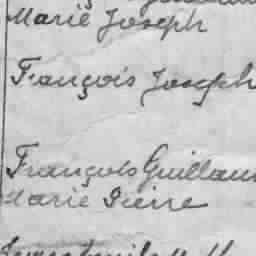 Marie Joseph
François Joseph
François Guillau
Marie Pierre